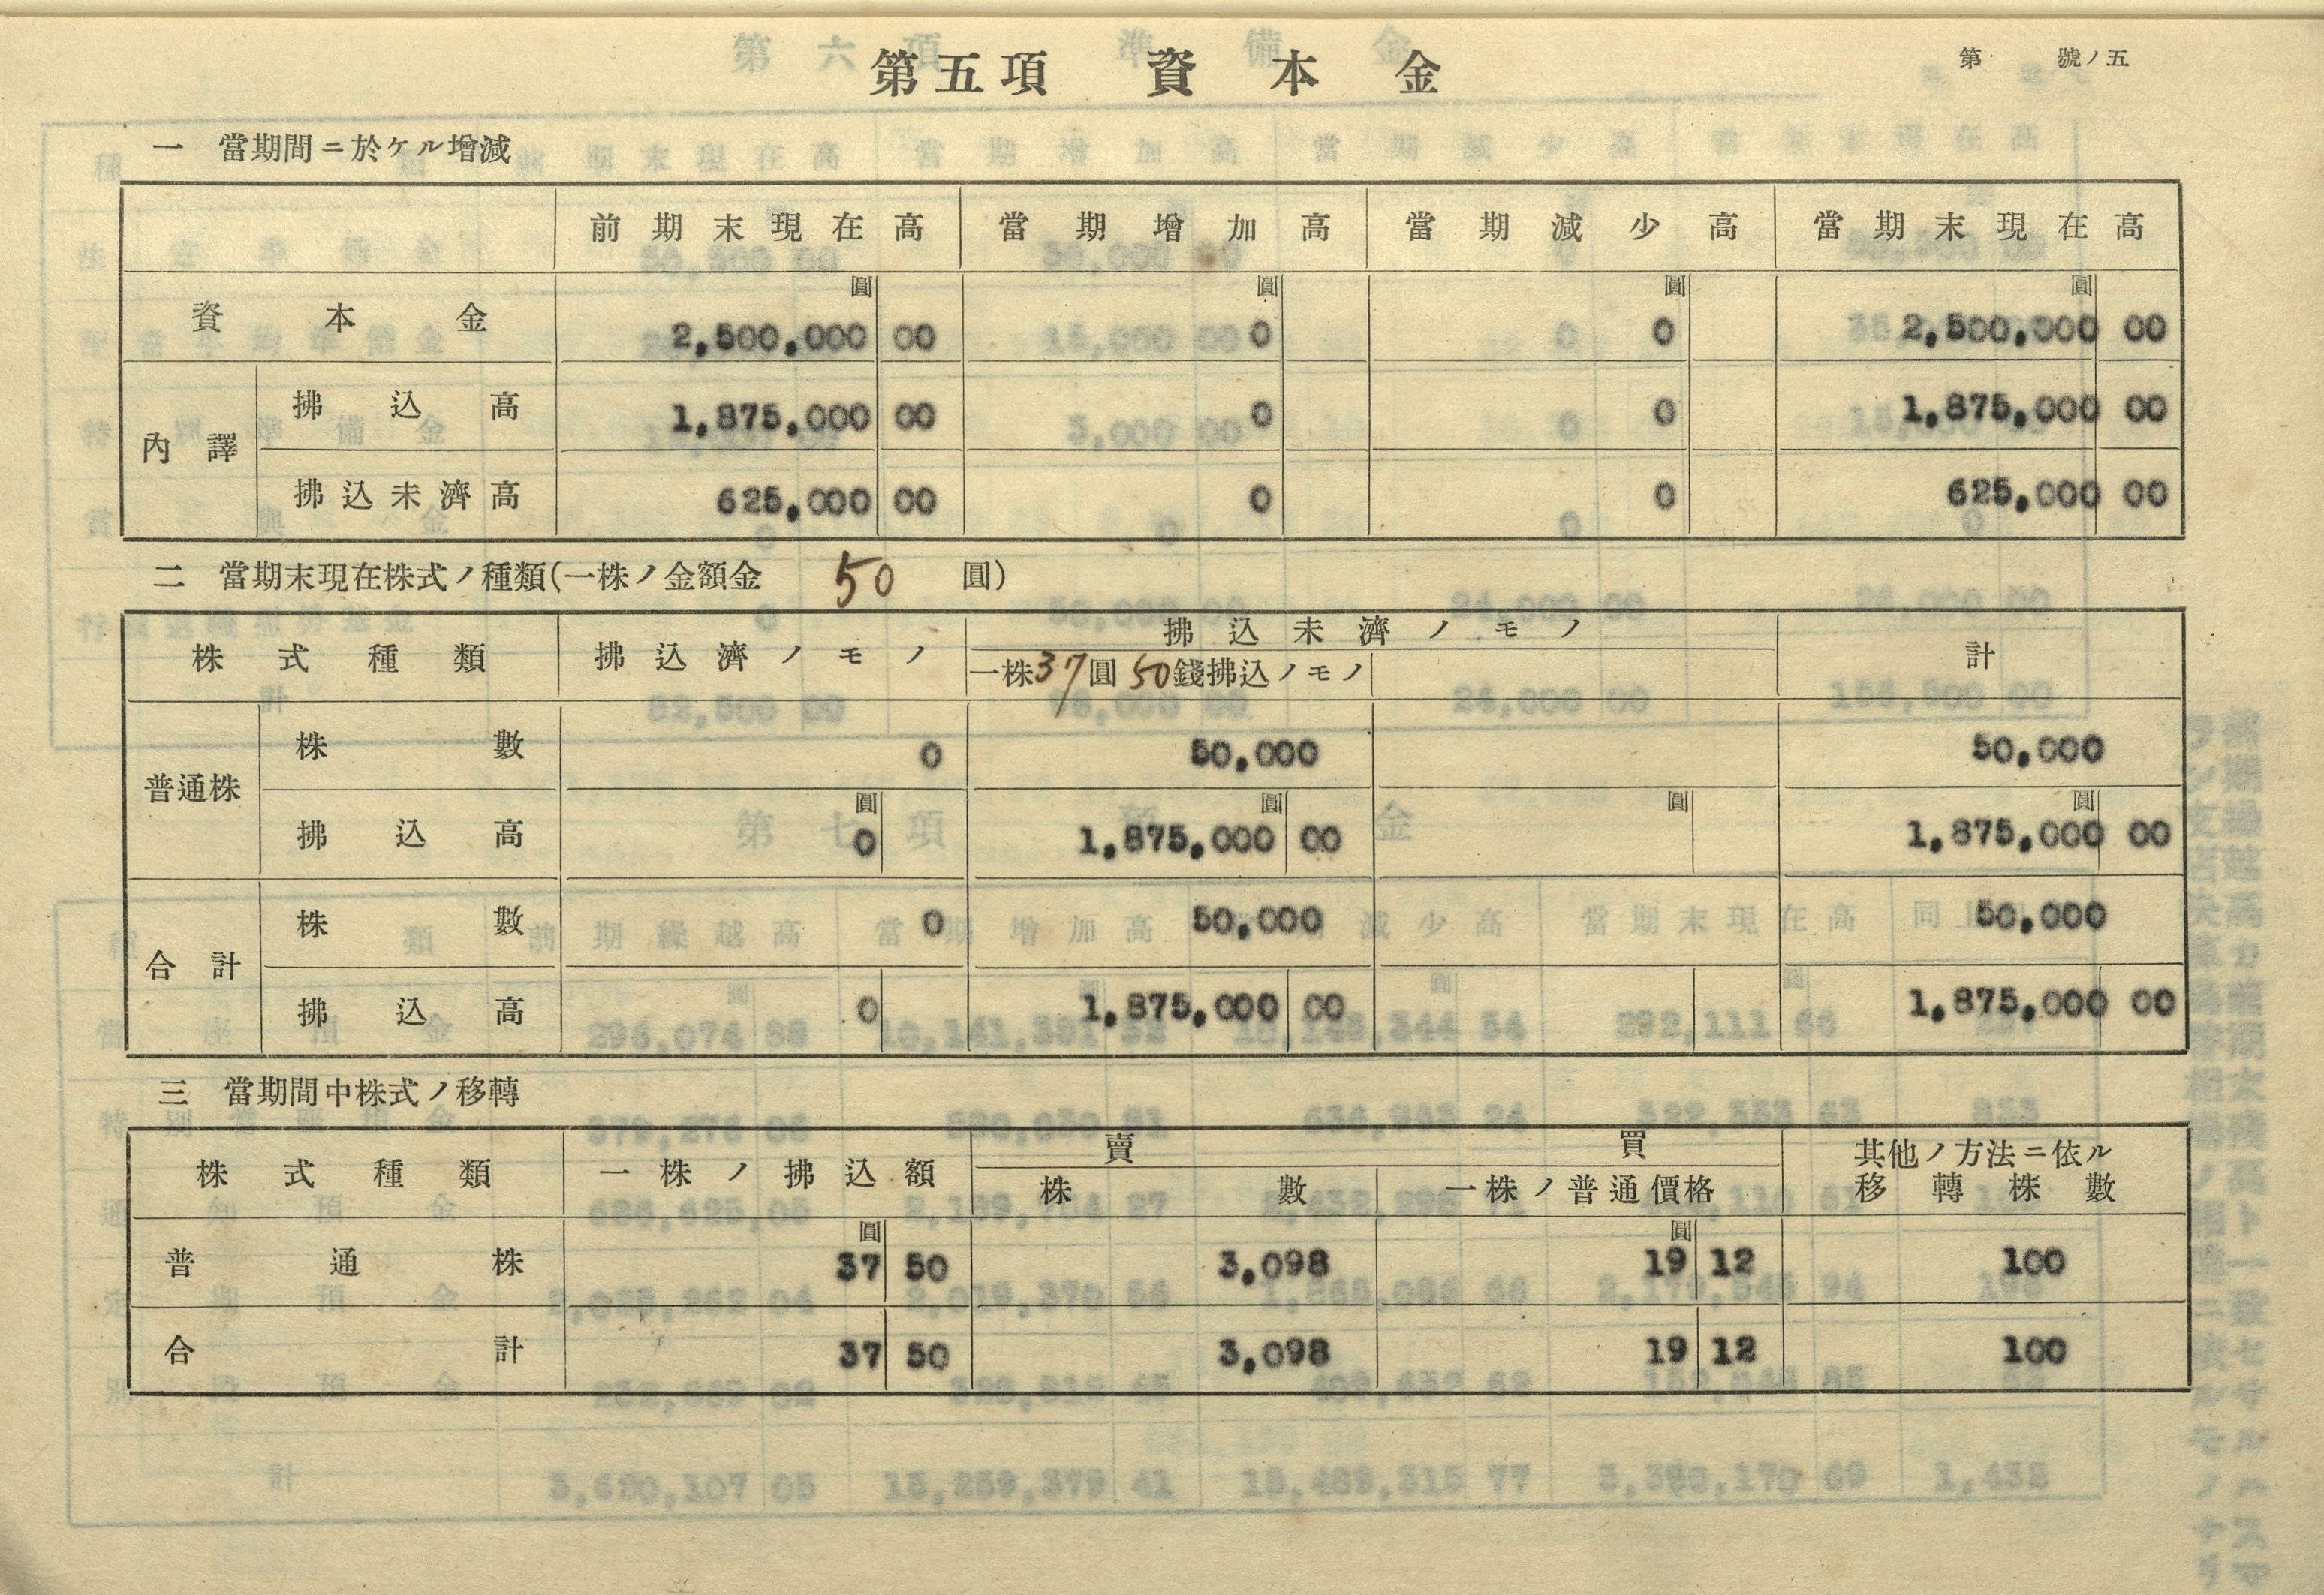 第五項 資本金
第 號ノ五
一 當期間ニ於ケル增減
前期末現在高 當期增加高 當期減少高 當期末現在高
圓 圓 圓 圓
資本金 2,500,000 00 0 0 2,500,000 00
內譯
拂込高 1,875,000 00 0 0 1,875,000 00
拂込未濟高 625,000 00 0 0 625,000 00
二 當期末現在株式ノ種類(一株ノ金額金 50 圓)
株式種類 拂込濟ノモノ 拂込未濟ノモノ 計
一株37圓50錢拂込ノモノ
普通株
株數 0 50,000 50,000
圓 圓 圓 圓
拂込高 0 1,875,000 00 1,875,000 00
合計
株數 0 50,000 50,000
拂込高 0 1,875,000 00 1,875,000 00
三 當期間中株式ノ移轉
株式種類 一株ノ拂込額 賣買 其他ノ方法ニ依ル
株數 一株ノ普通價格 移轉株數
圓 圓
普通株 37 50 3,098 19 12 100
合計 37 50 3,098 19 12 100